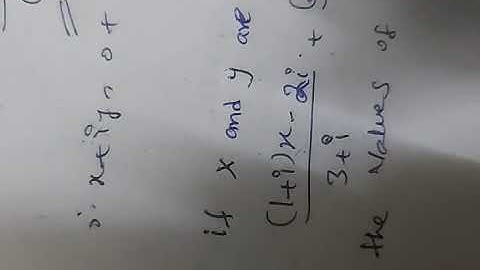 ∴ x+iy = 0 +
if x and y are
(1+i)x - 2i +
3+i
the values of